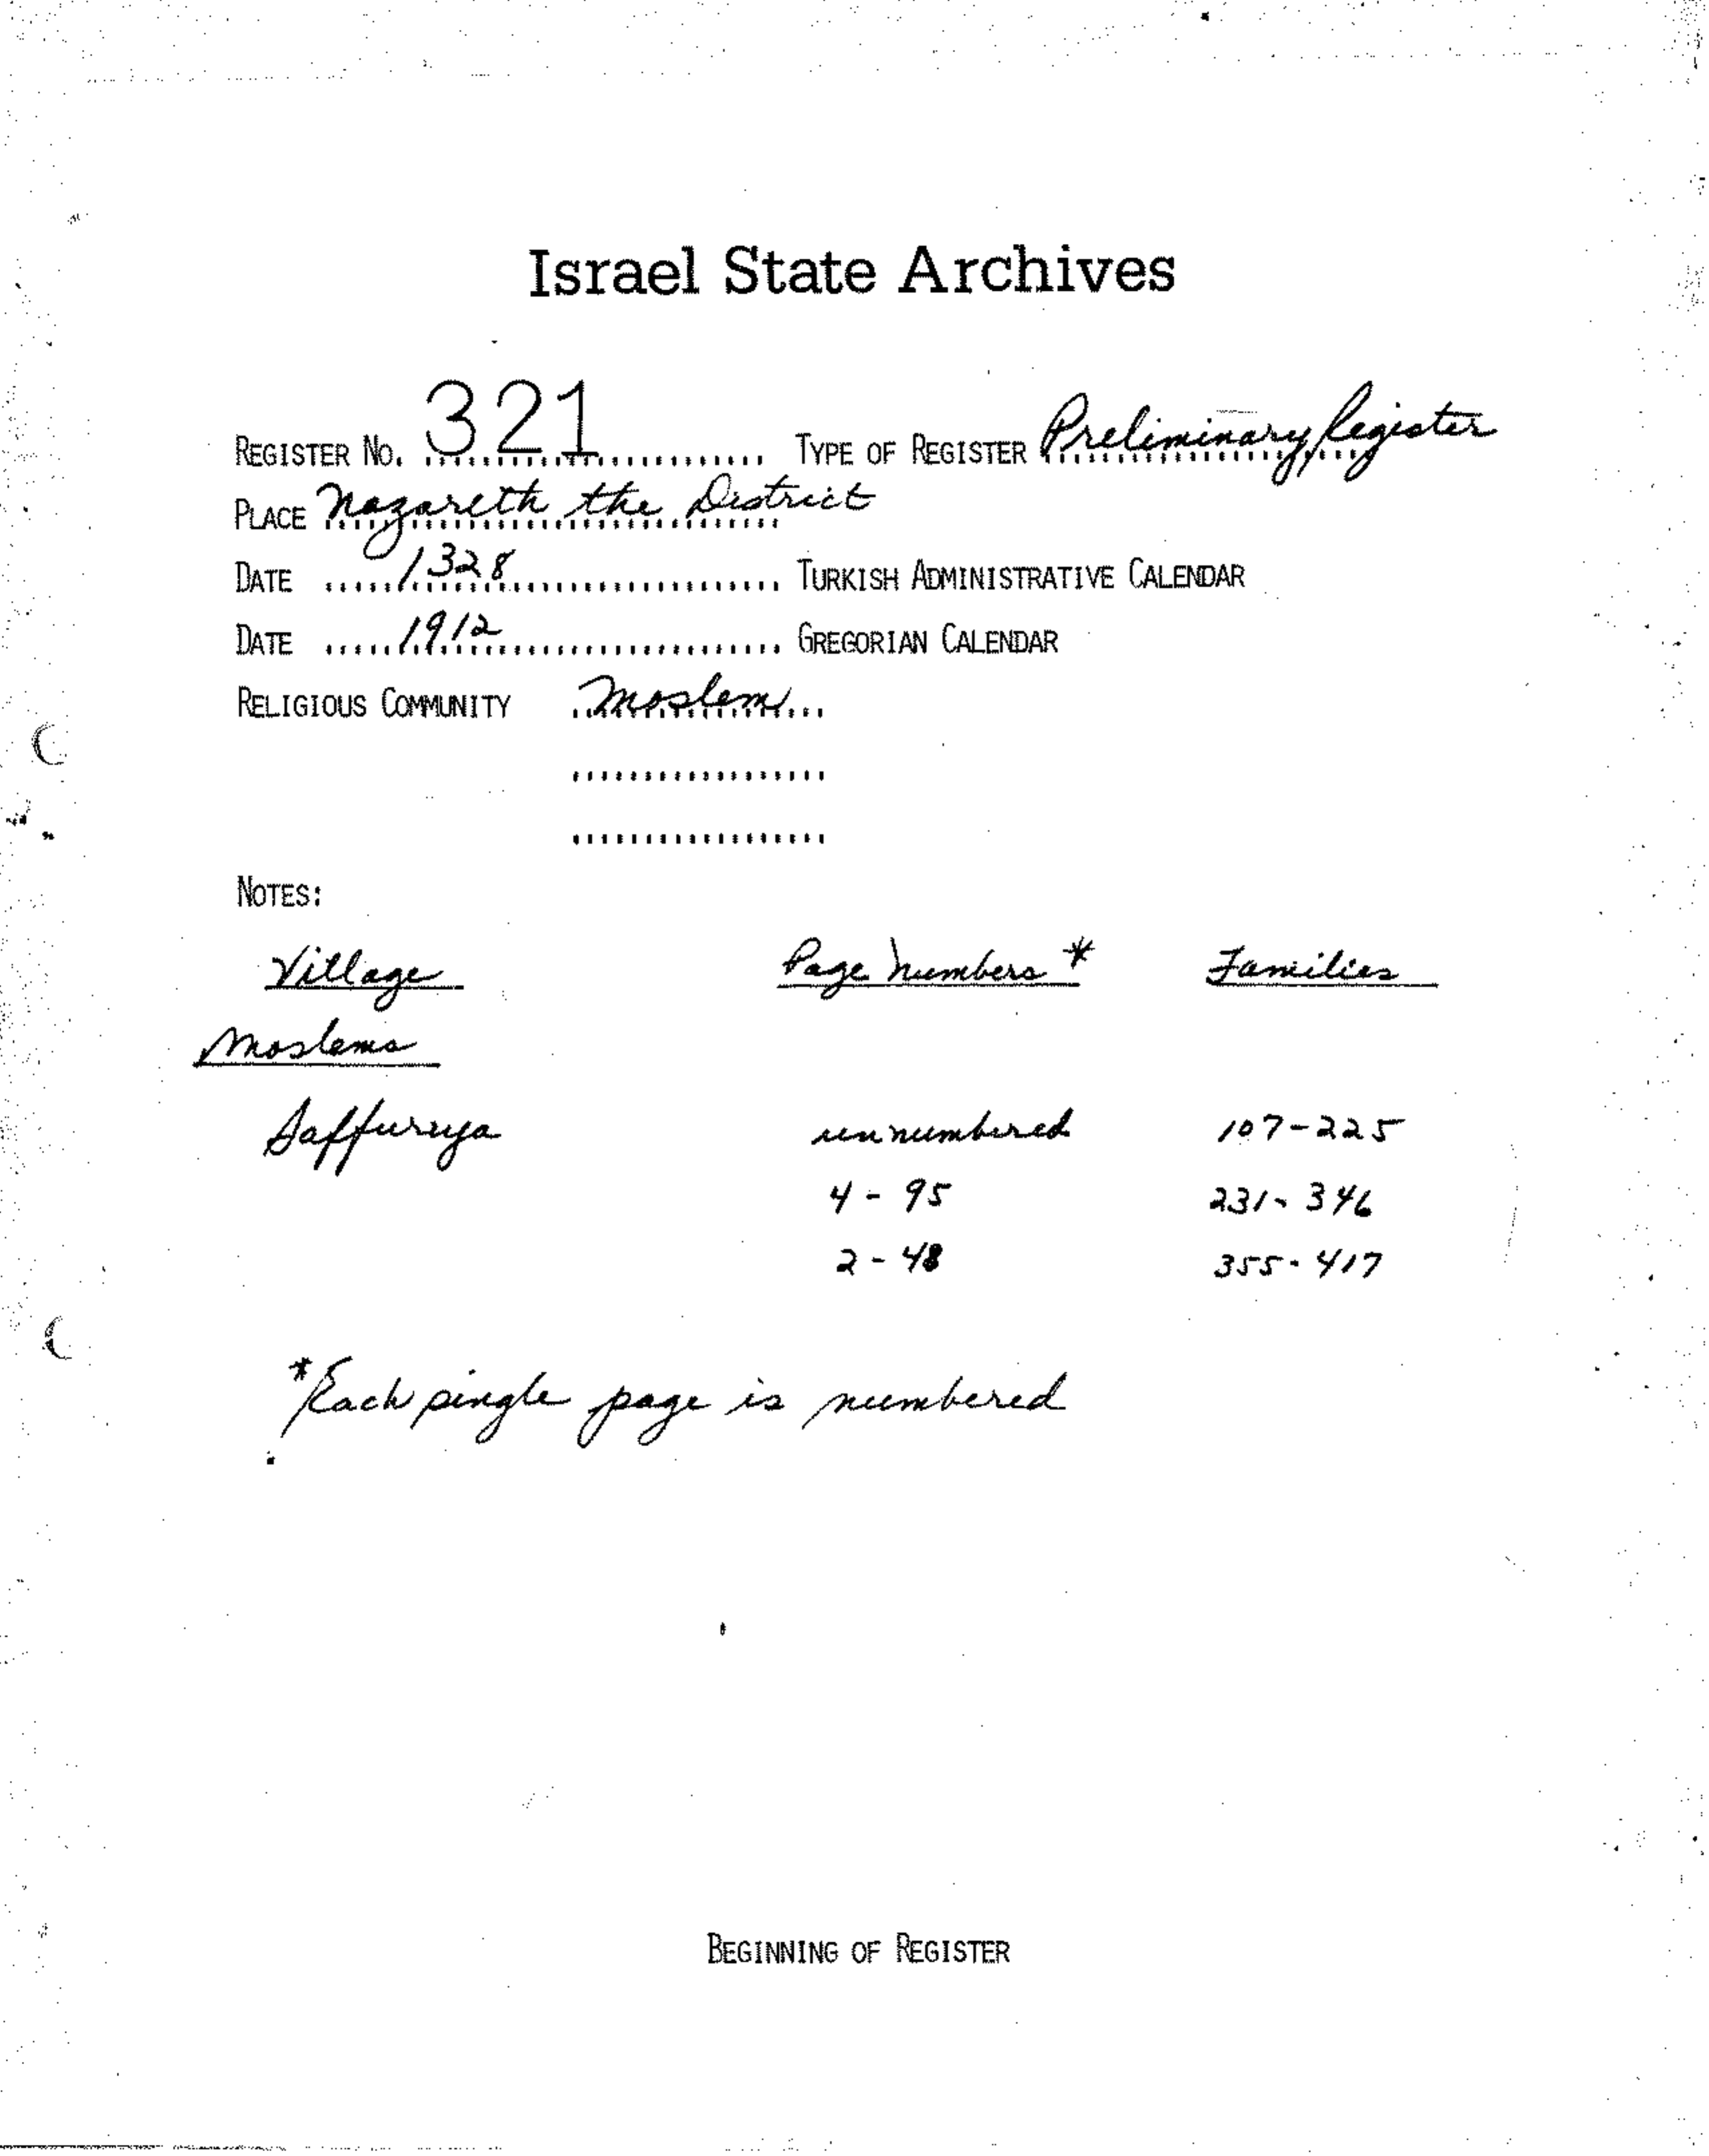 Israel State Archives
REGISTER NO. 321 TYPE OF REGISTER Preliminary Register
PLACE Nazareth the District
DATE 1328 TURKISH ADMINISTRATIVE CALENDAR
DATE 1912 GREGORIAN CALENDAR
RELIGIOUS COMMUNITY Moslem
NOTES:
Village Page Numbers * Families
Moslems
Saffuriya unnumbered 107-225
4 - 95 231-346
2 - 48 355-417
*Each single page is numbered
BEGINNING OF REGISTER